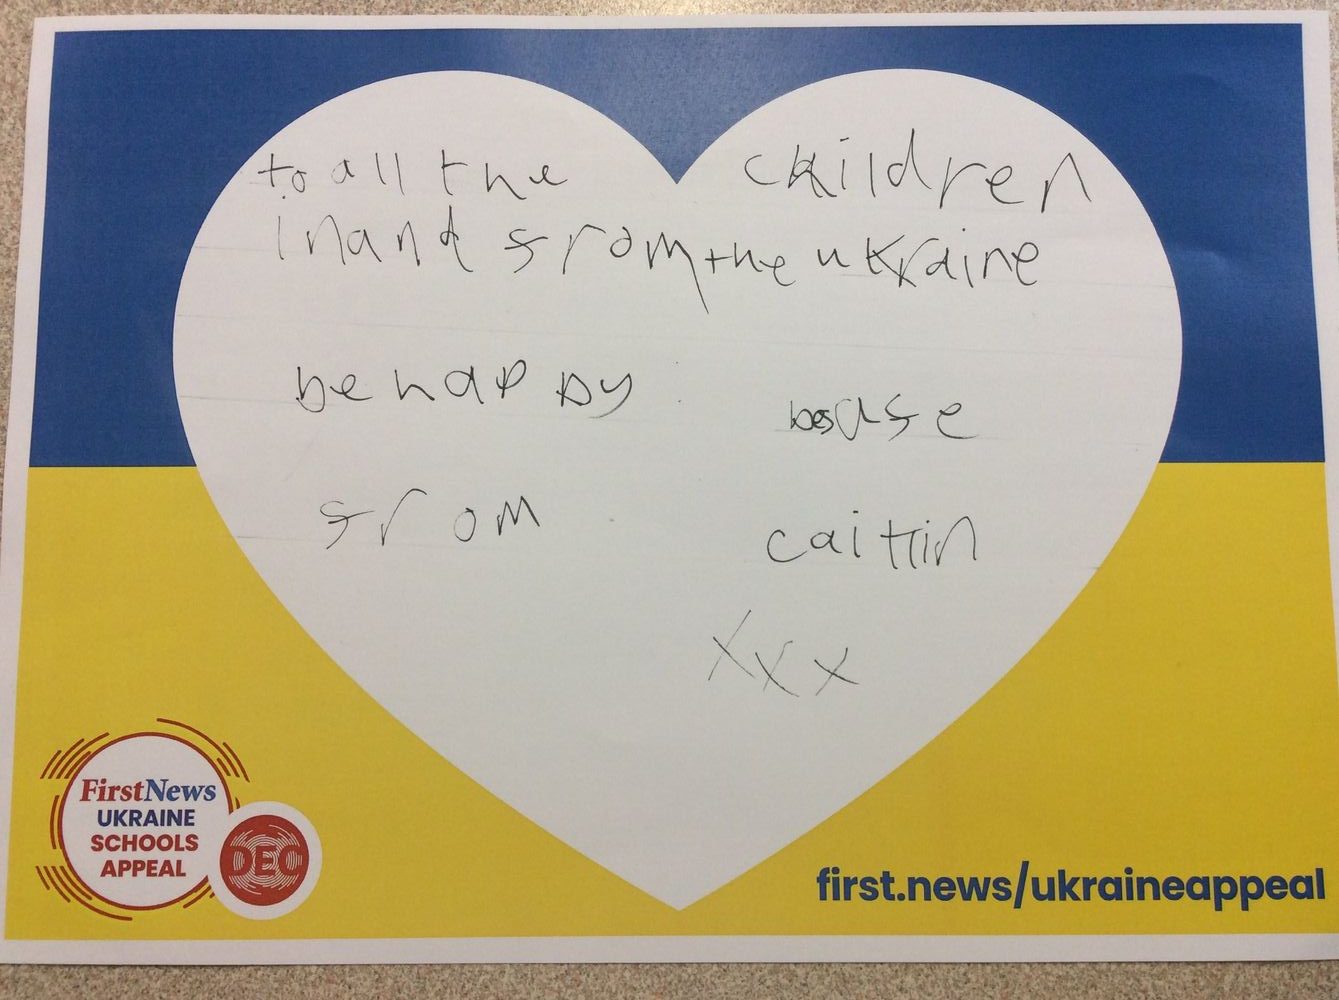 to all the children
in and from the ukraine
be happy
from caitlin
xxx
FirstNews
UKRAINE
SCHOOLS
APPEAL
DEC
first.news/ukraineappeal